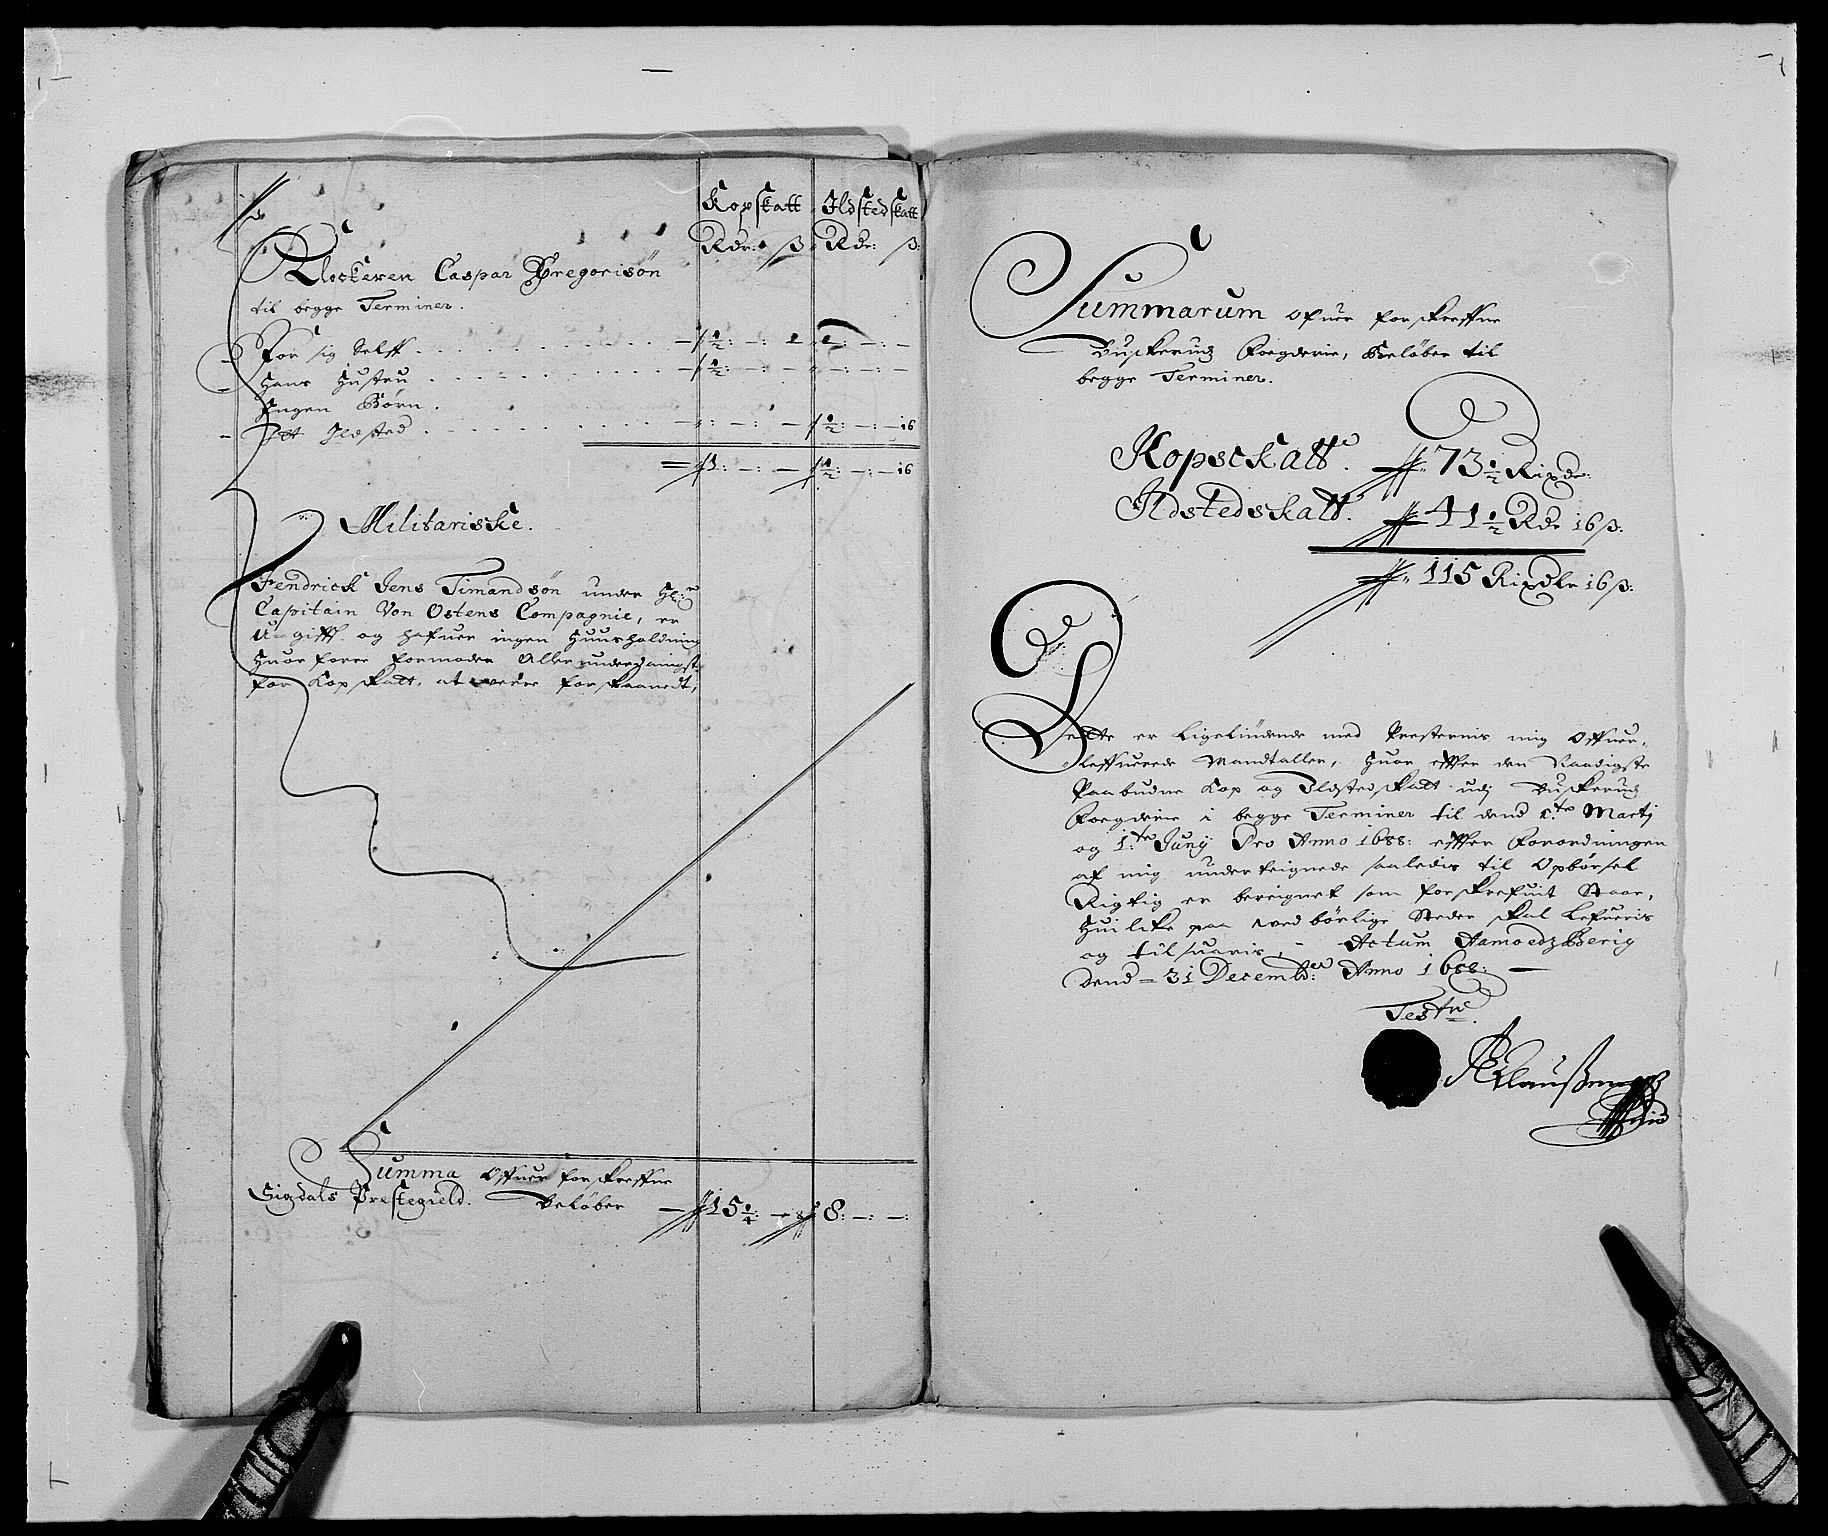 Kopskatt Ildstedskatt
Rdr: ß Rdr: ß:
Klockeren Caspar Gregorisøn
til begge Terminer.
For sig Self . . . . . ½: —: — —: —
Hans Hustru . . . . . ½: —: — —: —
Ingen Børn.
Itt Ildsted . . . . . —: — ½: —: — 16
1: —: — ½: —: — 16
Militariske.
Fendrick Jens Timandsøn under Hr:
Capitain Von Ostens Compagnie, er
Ugifft og hafuer ingen Huusholdning
Huorforre formoder Allerunderdanigst
for Kopskatt, at were forskaanedt,
Summa Offuer forskreffne
Sigdals Prestegield. Beløber 15¼: — 8: —: —:
Summarum ofuer forskreffne
Buskeruds Foegderie, Beløber til
begge Terminer.
Kopsckatt. 73½ Rixdr:
Ildstedskatt. 41½ Rdr 16 ß:
115 Rixdlr 16 ß:
Dette er Ligeliudende med Presternis mig Offuer,
leffuerede Mandtaller, Huor effter den Naadigste
Paabudne Kop og Ildstedskatt udj Buskeruds
Foegderie i begge Terminer til dend 1:te Martj
og 1:te Junÿ Pro Anno 1688: effter Forordningen
af mig underteignede saaledis til Opbørsel
Rigtig er bereignet som forskrefuit Staar,
Huilke paa wedbørlige Steder skal Lefueris
og tilsuaris, Actum HamoedzBerig
dend 31 Decembr: Anno 1688:
Test
Claußen